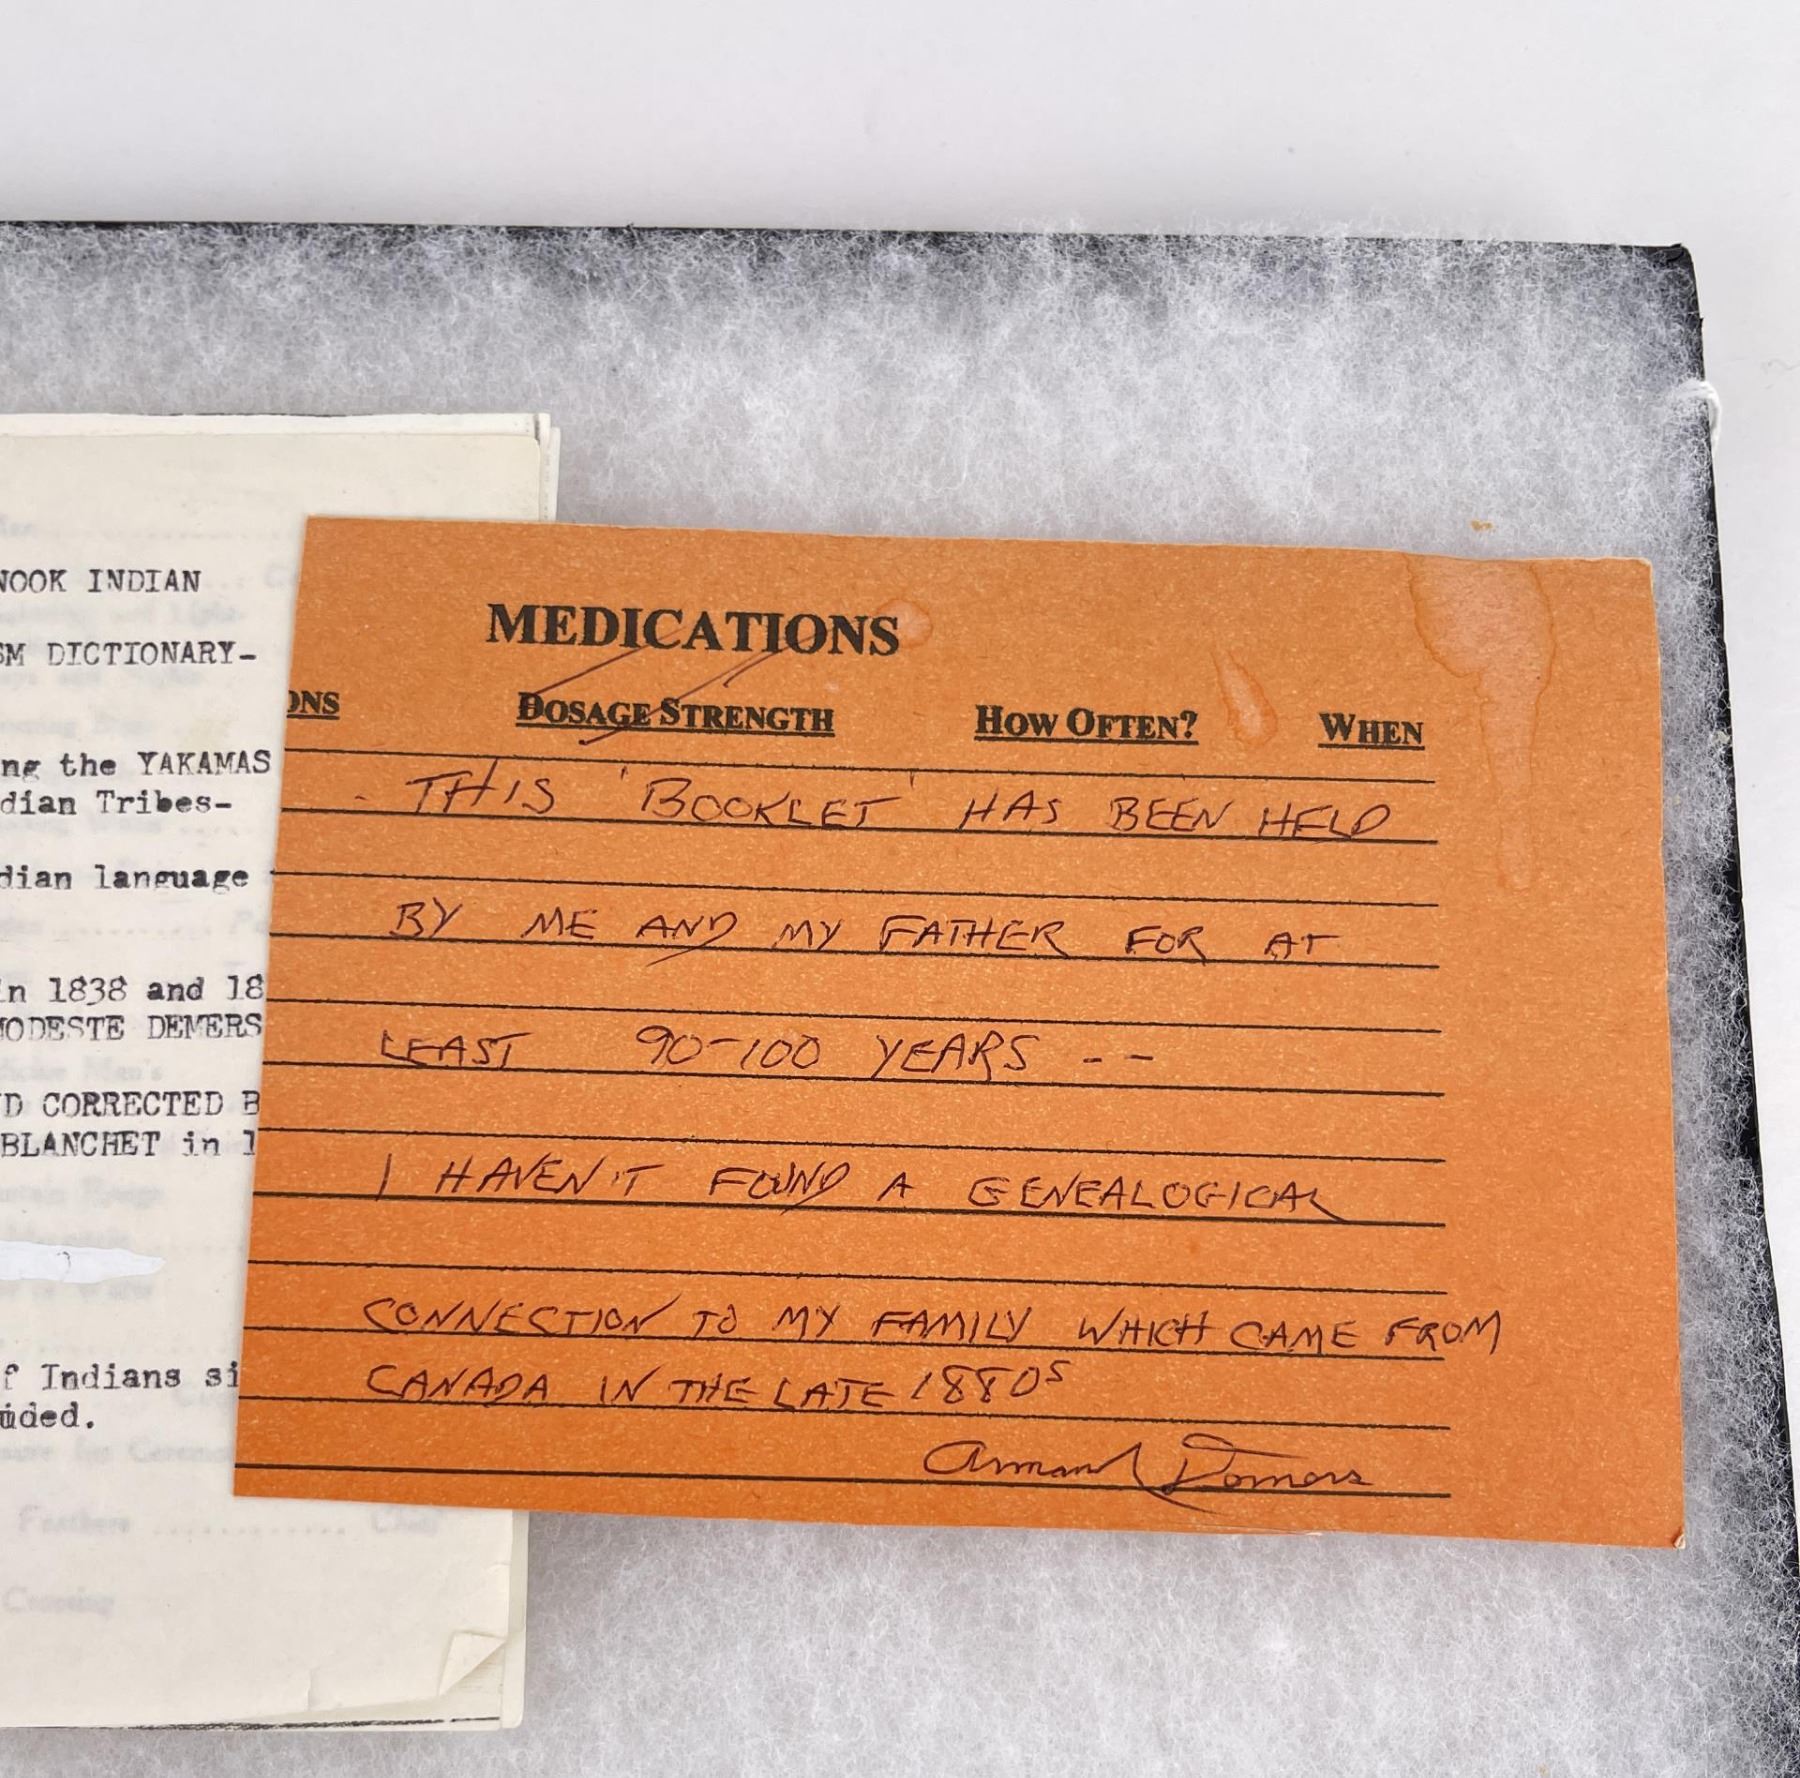 NOOK INDIAN
SM DICTIONARY-
ng the YAKAMAS
dian Tribes-
dian language
in 1838 and 18
MODESTE DEMERS
D CORRECTED B
BLANCHET in 1
f Indians si
uded.
Feathers ............ Chief
Crossing
MEDICATIONS
ONS DOSAGE STRENGTH HOW OFTEN? WHEN
THIS 'BOOKLET' HAS BEEN HELD
BY ME AND MY FATHER FOR AT
LEAST 90-100 YEARS --
I HAVEN'T FOUND A GENEALOGICAL
CONNECTION TO MY FAMILY WHICH CAME FROM
CANADA IN THE LATE 1880S
Armand